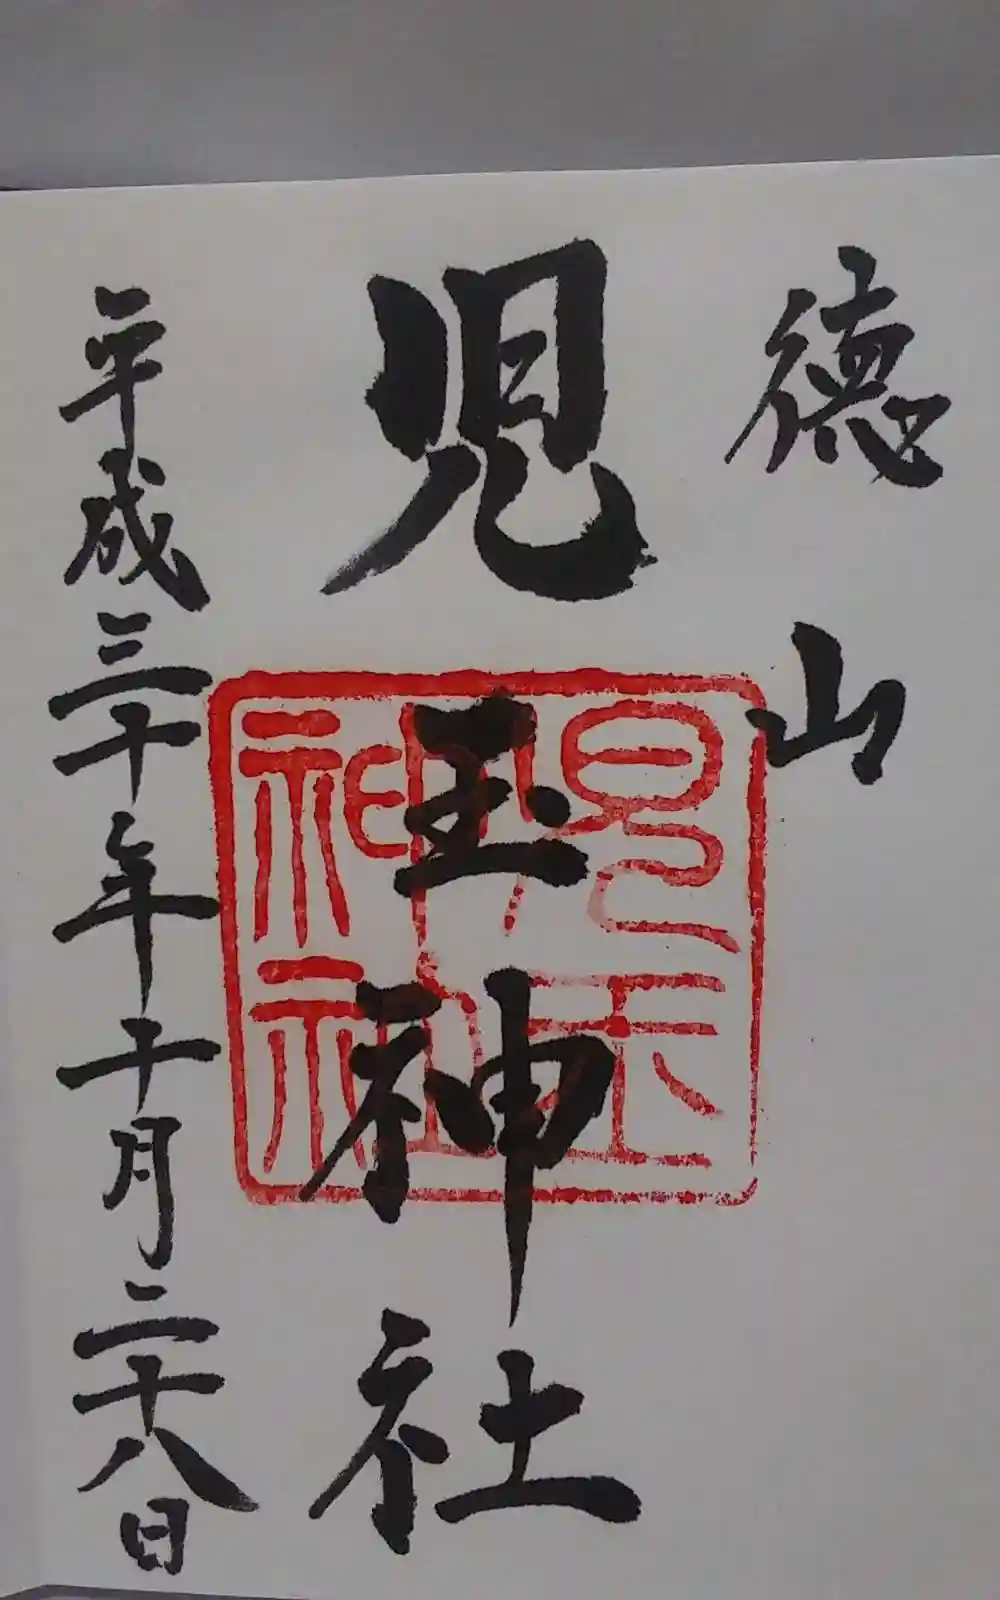 徳山
児玉神社
兒玉神社
平成三十年十月二十八日